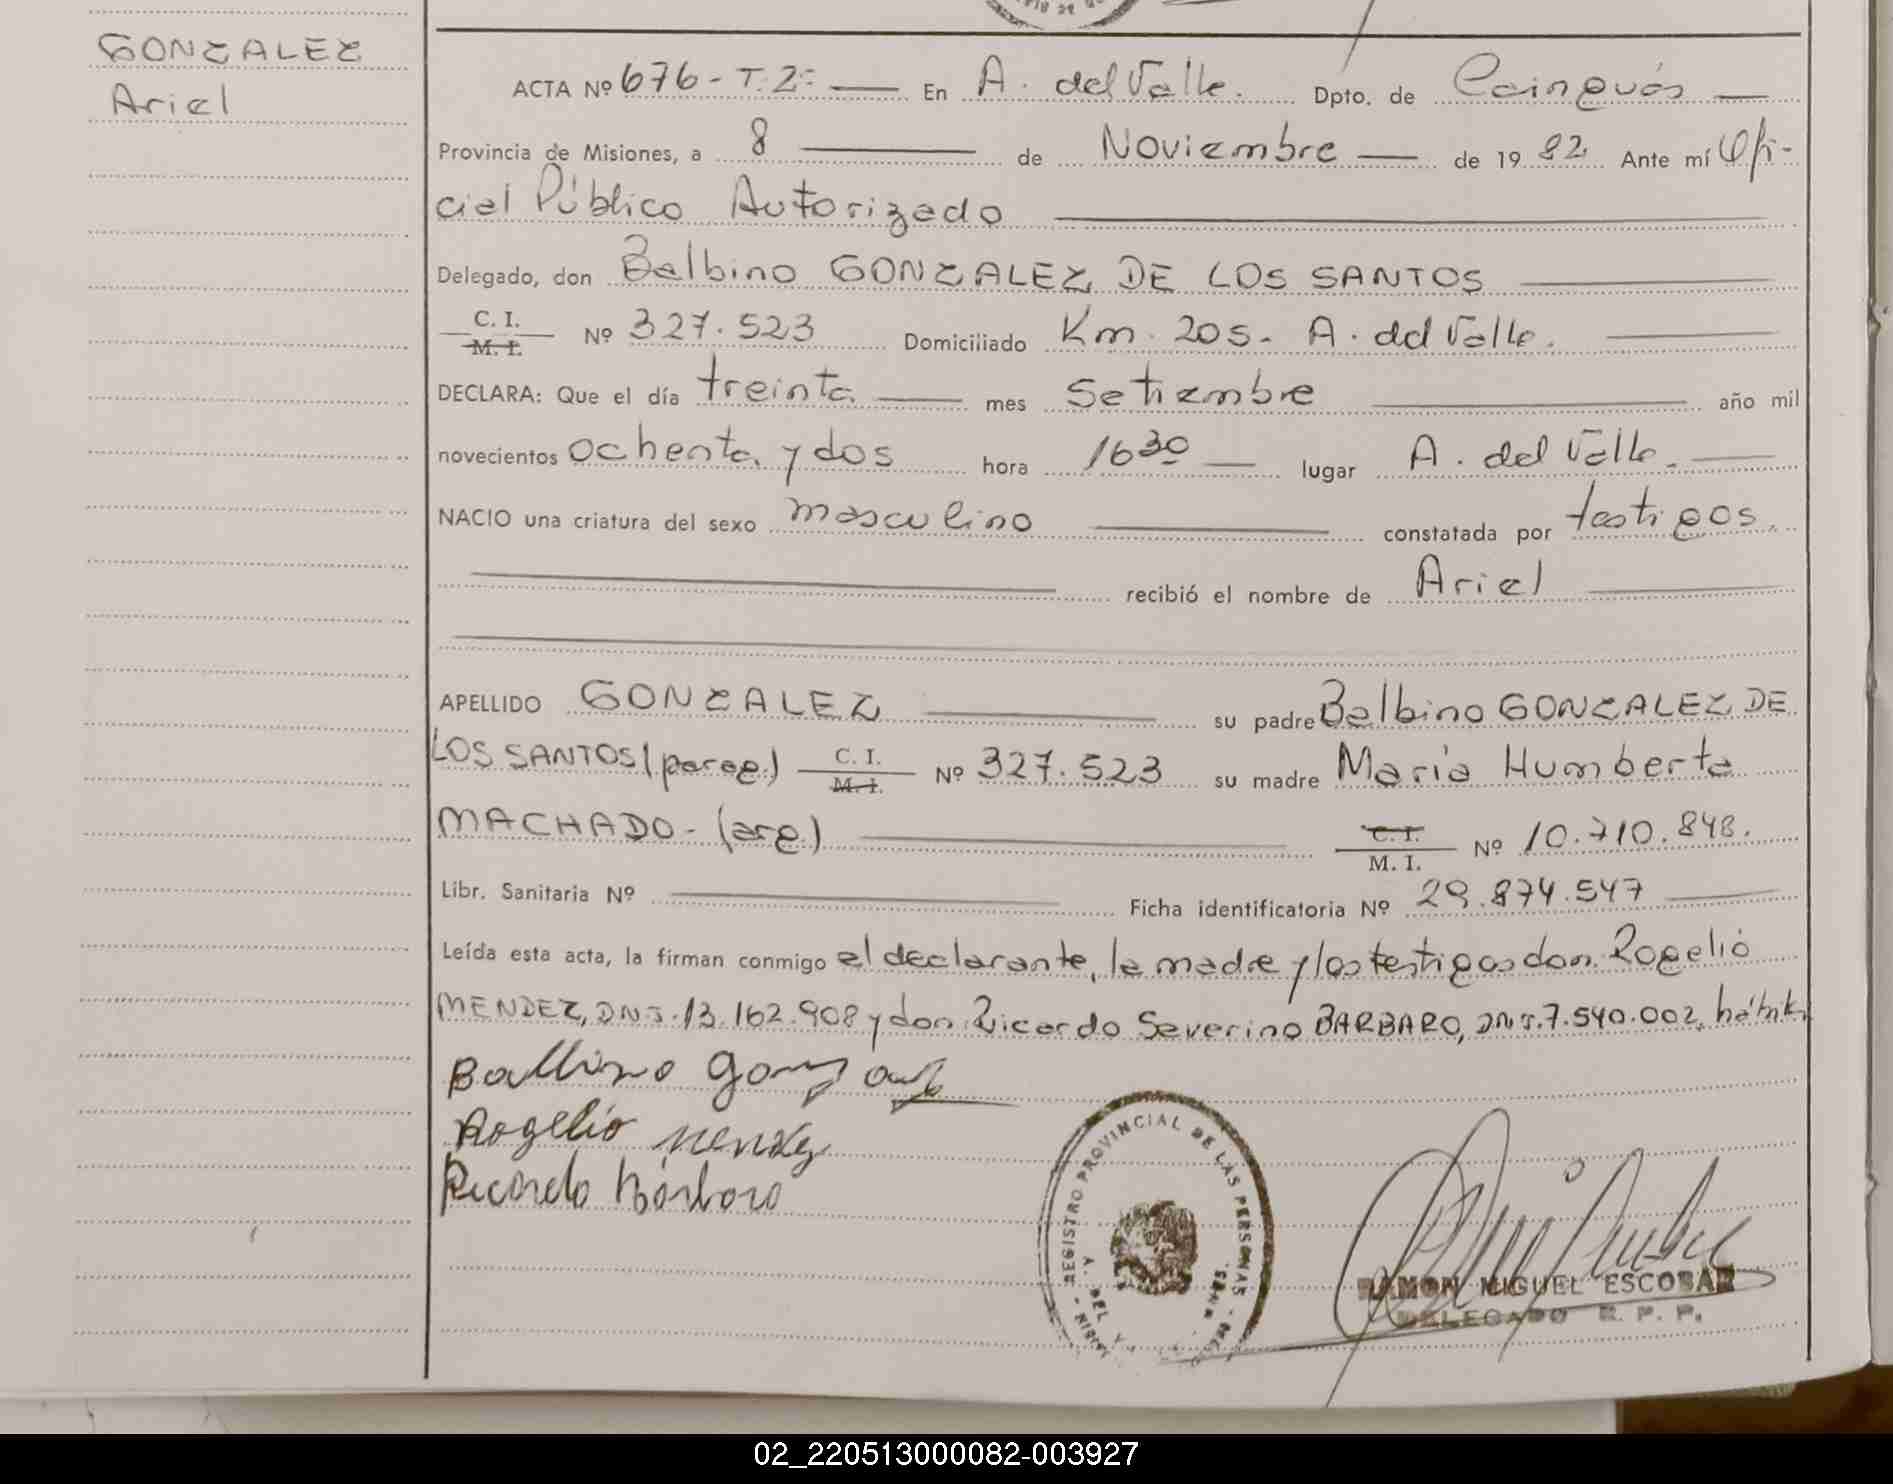 GONZALEZ
Ariel
ACTA Nº 676 - T. 2º En A. del Valle. Dpto. de Cainguás
Provincia de Misiones, a 8 de Noviembre de 19 82 Ante mí Ofi-
cial Público Autorizado
Delegado, don Balbino GONZALEZ DE LOS SANTOS
C. I.
M. I. Nº 327.523 Domiciliado Km. 205 - A. del Valle.
DECLARA: Que el día treinta mes Setiembre año mil
novecientos ochenta y dos hora 16 30 lugar A. del Valle.
NACIO una criatura del sexo masculino constatada por testigos.
recibió el nombre de Ariel
APELLIDO GONZALEZ su padre Balbino GONZALEZ DE
LOS SANTOS (parag.) C. I. M. I. Nº 327.523 su madre María Humberta
MACHADO - (arg.) C. I. M. I. Nº 10.710.848.
Libr. Sanitaria Nº Ficha identificatoria Nº 29.874.547
Leída esta acta, la firman conmigo el declarante, la madre y los testigos don Rogelio
MENDEZ, DNI. 13.162.908 y don Ricardo Severino BARBARO, DNI. 7.540.002,
Balbino Gonzalez
Rogelio Mendez
Ricardo Bárbaro
REGISTRO PROVINCIAL DE LAS PERSONAS
RAMON MIGUEL ESCOBAR
DELEGADO R. P. P.
02_220513000082-003927